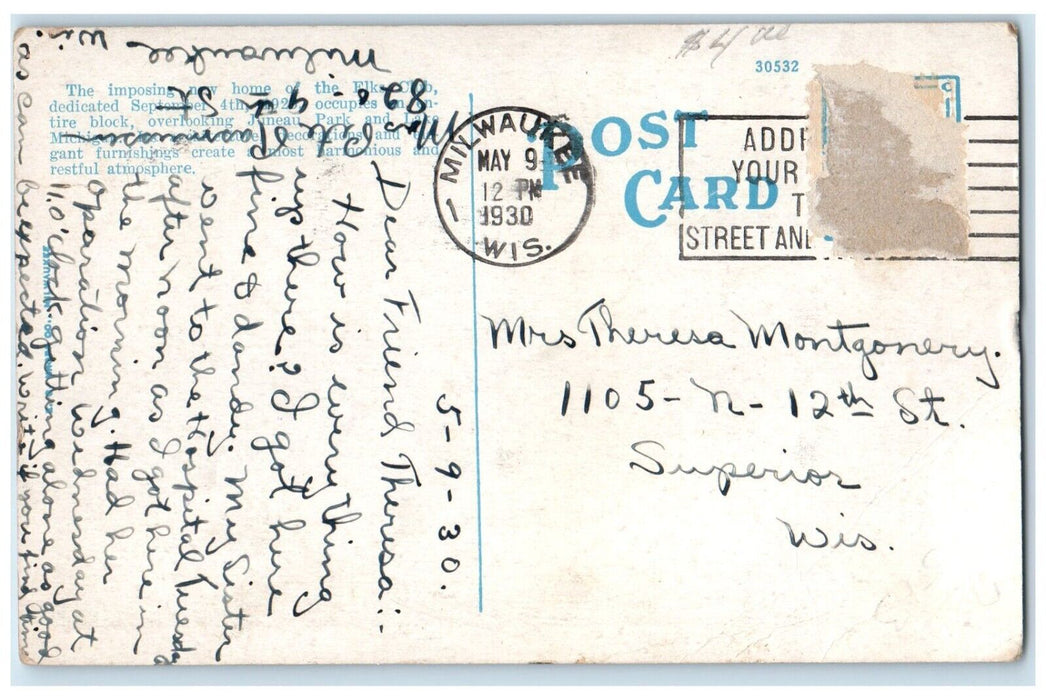 $4 00
30532
The imposing new home of the Elks Club,
dedicated September 4th, 192 occupies an en-
tire block, overlooking Juneau Park and Lake
Michigan. decorations and
gant furnishings create a most harmonious and
restful atmosphere.
POST
CARD
MILWAUKEE
MAY 9
12 PM
1930
WIS.
ADDR
YOUR
T
STREET AND
Mrs Theresa Montgomery.
1105 - N - 12th St.
Superior
Wis.
5-9-30.
Dear Friend Theresa:
How is every thing
up there? I got here
fine & dandy. My Sister
went to the Hospital Tuesday
after noon as I got here in
the morning. Had her
opparation Wednesday at
11 O'clock getting alone as good
as can be expected. write if you find time
829
9th
St
Milwaukee
Wi.